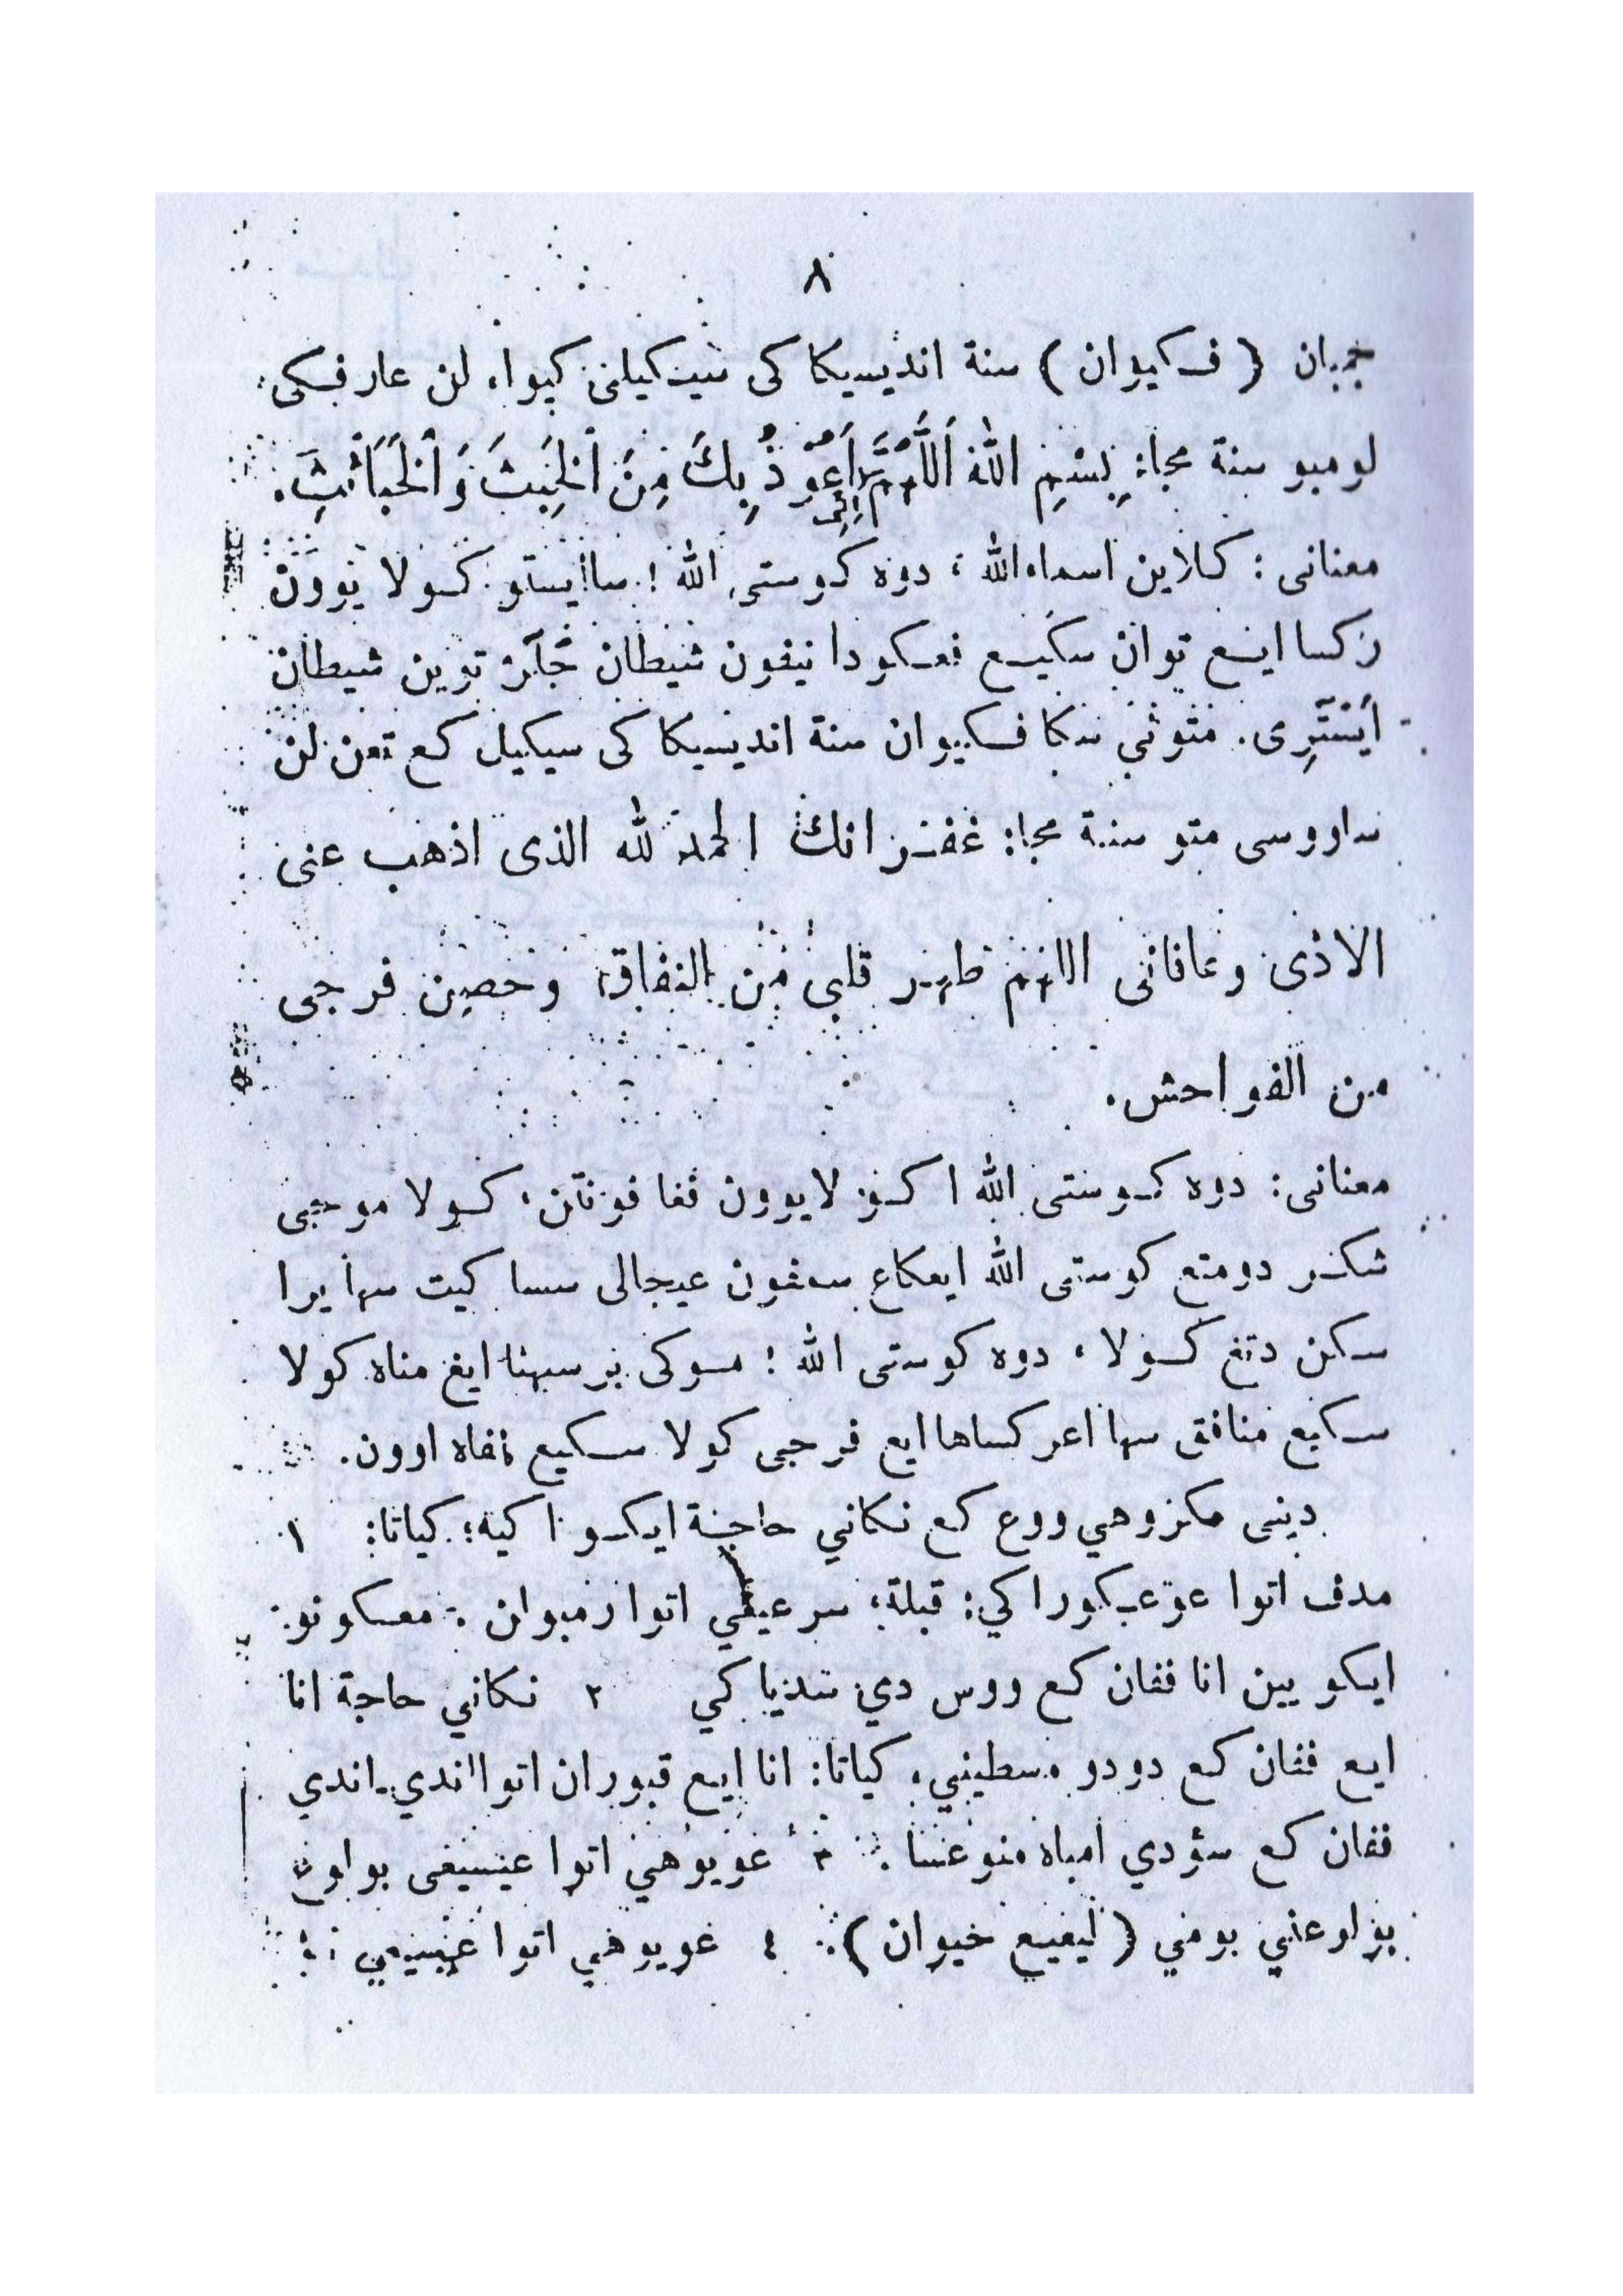 ٨
جمبان ( فكيوان ) سنة انديسيكا كى سيكيلى كيوا، لن عارفكى
لومبو سنة مجا: بِسْمِ اللّٰه اَللّٰهُمَّ اِنِّى اَعُوْذُ بِكَ مِنَ الْخُبُثِ وَالْخَبَائِثِ.
معنانى : كلاين اسماء الله ؛ دوه كوستى الله ! سا ايستو كولا يوون
ركسا ايع توان سكيع فعكودا نيفون شيطان جَلَر توين شيطان
اَيْسْتَرِى. متوني سكا فكيوان سنة انديسيكا كى سيكيل كع تعن لن
ساووسى متو سنة مجا: غفرانك الحمد لله الذى اذهب عنى
الاذى وعافانى اللهم طهر قلبى من النفاق وحصين فرجى
من الفواحش.
معنانى: دوه كوستى الله اكو لا يوون ڤغا فونتن، كولا موجى
شكر دومتع كوستى الله ايعكاع سمفون عيجالى سسا كيت سها يرا
سكن دتغ كولا ، دوه كوستى الله ! موكى برسيهنا ايغ مناه كولا
سكيع منافق سها اعركساها ايع فرجى كولا سكيع فاه اوون.
دينى مكروهي ووع كع نكاني حاجة ايكو اكيه؛ كياتا: ١
مدف اتوا عوعكوراكي: قبلة؛ سرعيعي اتوا رمبولن : معكونو
ايكو يين انا ففان كع ووس دي تنديا كي ٢ نكاني حاجة انا
ايع ففان كع دودو مسطيني، كياتا: انا اِيع قبوران اتوا اندي-اندي
ففان كع سؤدي امباه منوعسا. ٣ غويوهي اتوا عيسيغى بولوع
بولوعني بومي ( ليغيع خيوان ). ٤ غويوهي اتوا عيسيعي